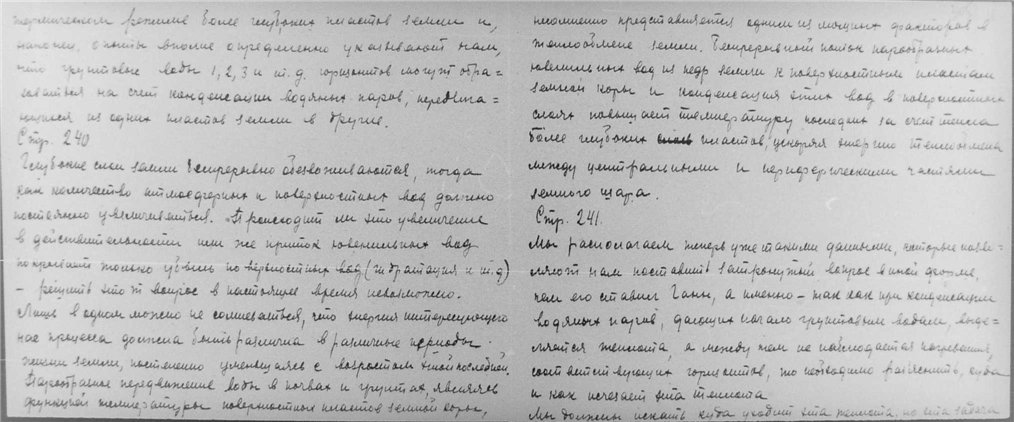 термическом режиме более глубоких пластов земли и,
наконец, опыты вполне определенно указывают нам,
что грунтовые воды 1, 2, 3 и т.д. горизонтов могут обра=
зоваться на счет конденсации водяных паров, передвига=
ющихся из одних пластов земли в другие.
Стр. 240
Глубокие слои земли беспрерывно обезвоживаются, тогда
как количество атмосферных и поверхностных вод должно
постоянно увеличиваться. Происходит ли это увеличение
в действительности или же приток ювенильных вод
покрывает только убыль поверхностных вод (гидратация и т.д)
– решить этот вопрос в настоящее время невозможно.
Лишь в одном можно не сомневаться, что энергия интересующего
нас процесса должна быть различна в различные периоды
жизни земли, постепенно уменьшаясь с возрастом этой последней.
Парообразное передвижение воды в почвах и грунтах, являясь
функцией температуры поверхностных пластов земной коры,
несомненно представляется одним из мощных факторов в
теплообмене земли. Беспрерывный поток парообразных
ювенильных вод из недр земли к поверхностным пластам
земной коры и конденсация этих вод в поверхностных
слоях повышает температуру последних за счет тепла
более глубоких слоев пластов, ускоряя энергию теплообмена
между центральными и периферическими частями
земного шара.
Стр. 241.
Мы располагаем теперь уже такими данными, которые позво=
ляют нам поставить затронутый вопрос в иной форме,
чем его ставил Ганн, а именно – так как при конденсации
водяных паров, дающих начало грунтовым водам, выде=
ляется теплота, а между тем не наблюдается нагревания
соответствующих горизонтов, то необходимо разъяснить, куда
и как исчезает эта теплота
Мы должны искать куда уходит эта теплота, но эта задача